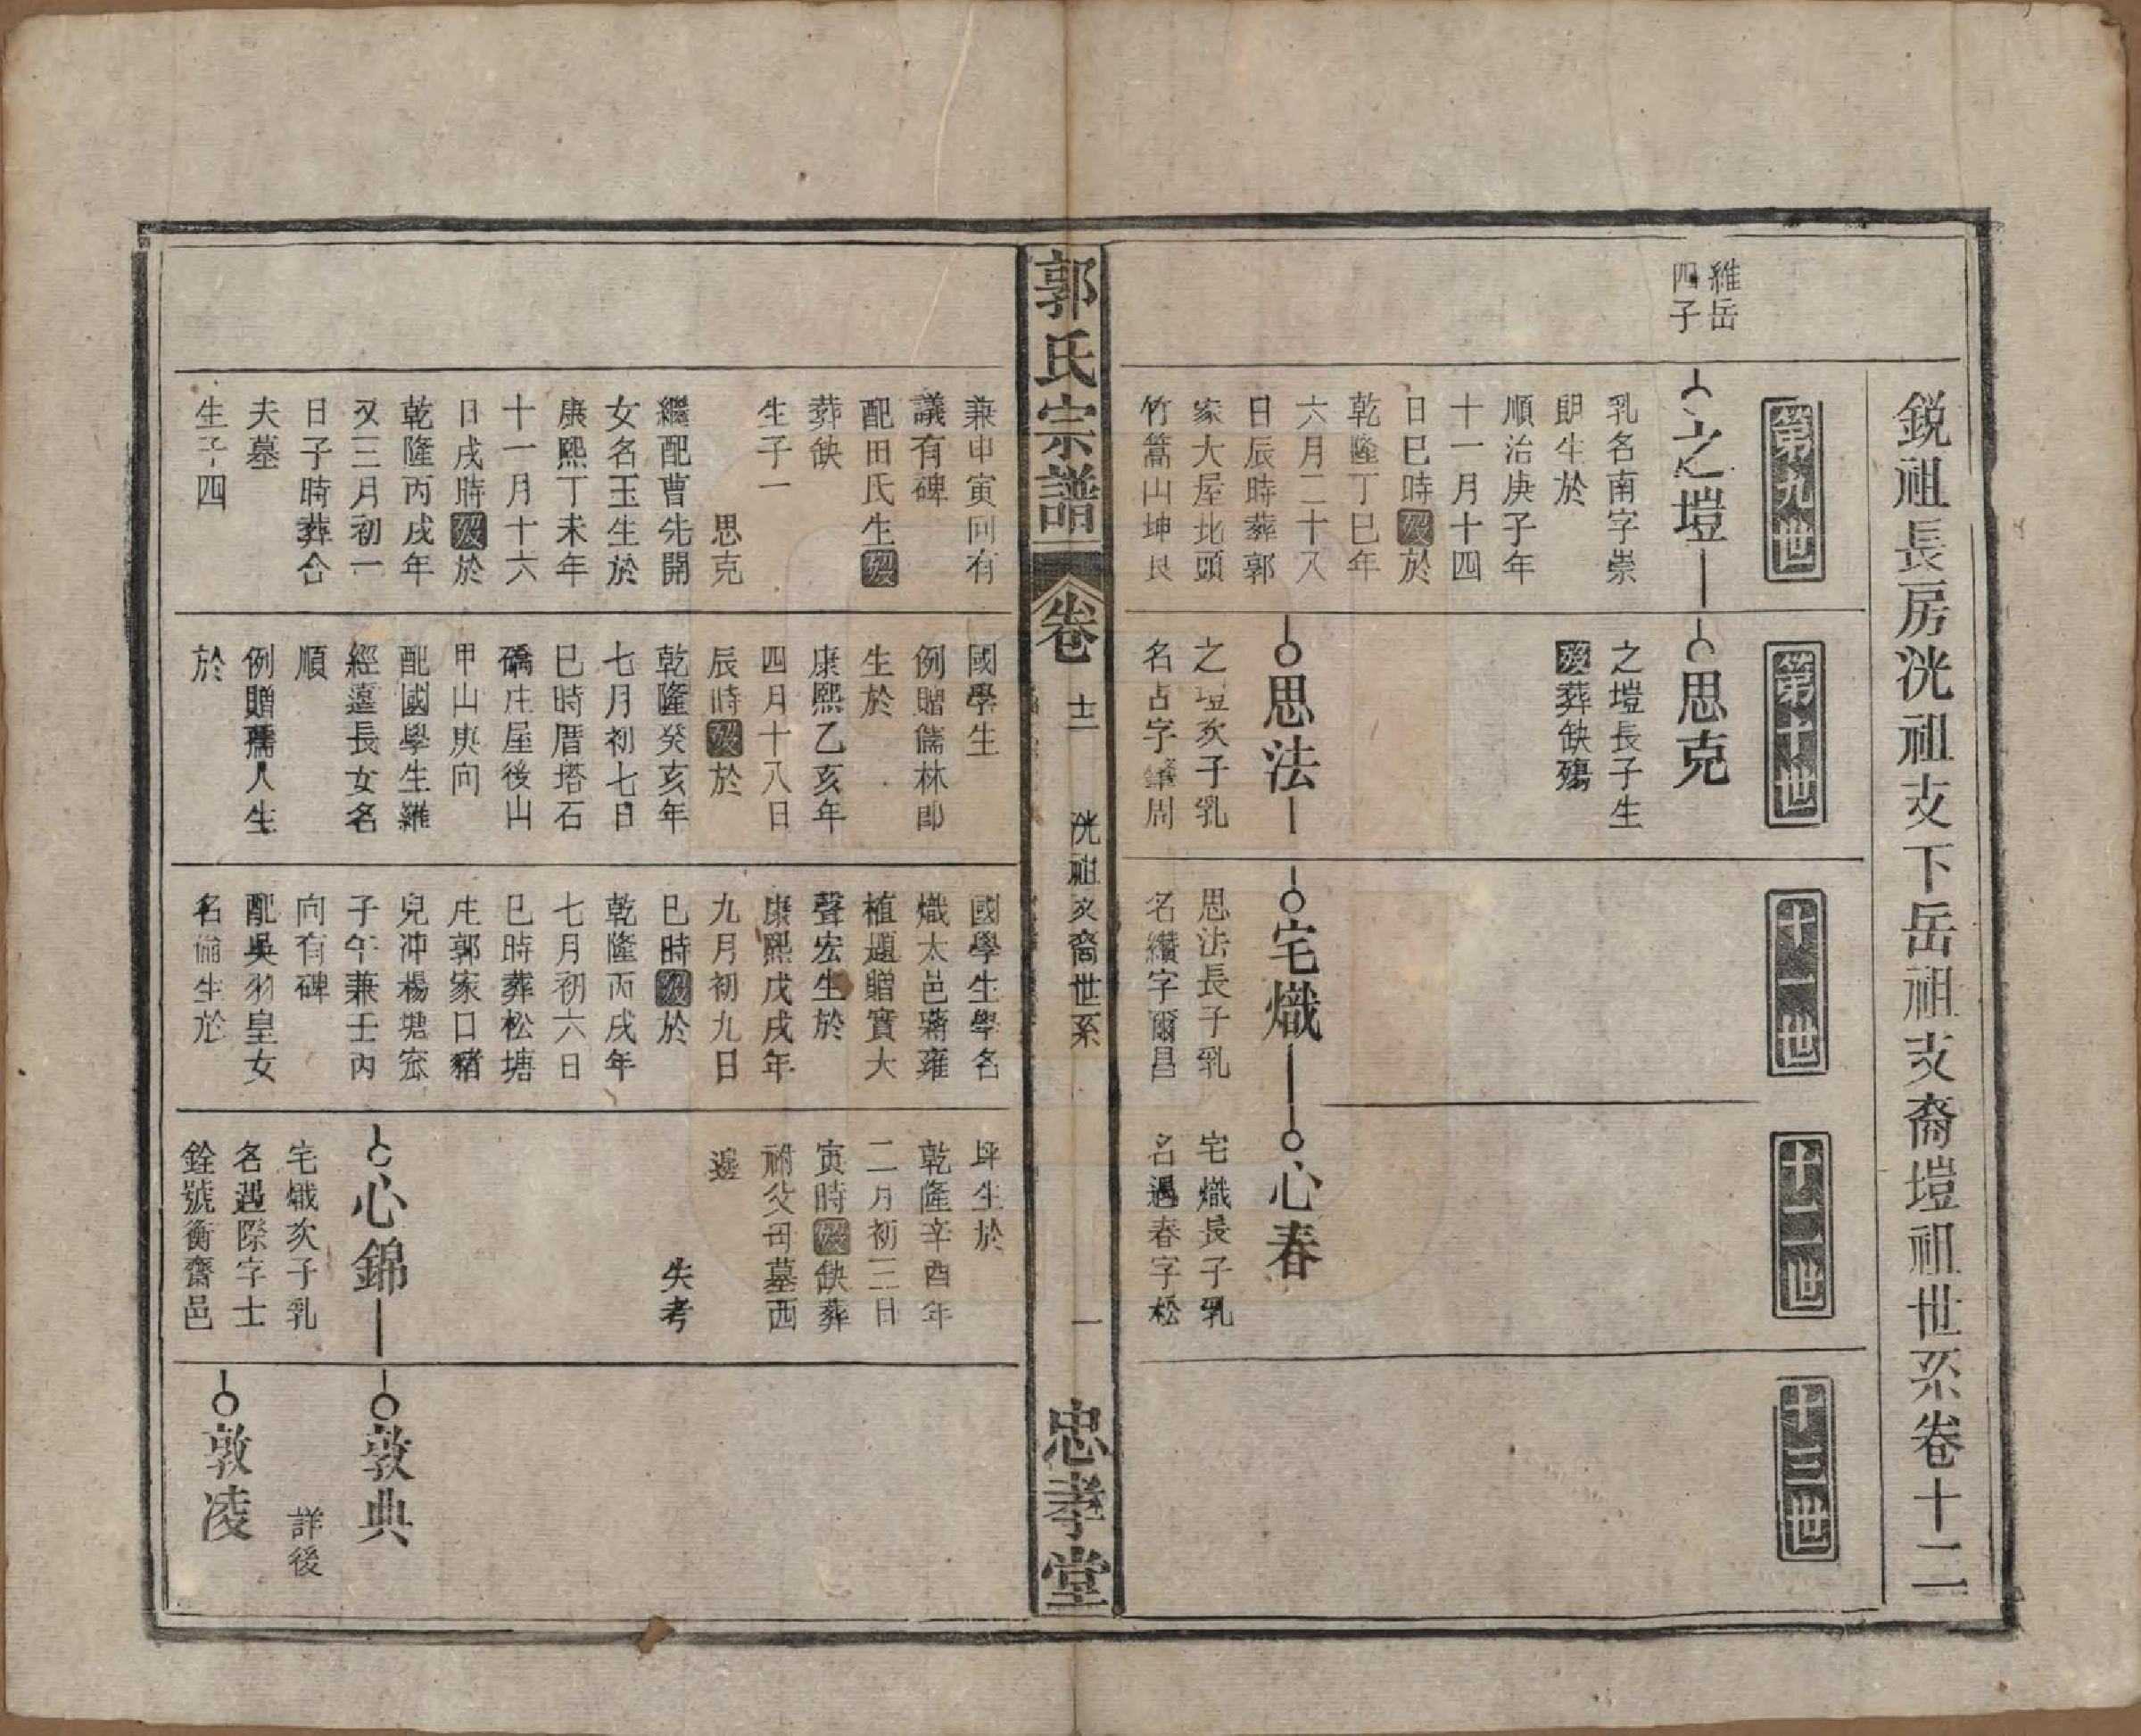 銳祖長房洸祖支下岳祖支裔塏祖世系卷十二
第九世
第十世
十一世
十二世
十三世
維岳
四子
之塏
乳名南字崇
朗生於
順治庚子年
十一月十四
日巳時歿於
乾隆丁巳年
六月二十八
日辰時葬郭
家大屋北頭
竹篙山坤艮
思克
之塏長子生
歿葬缺殤
思法
之塏次子乳
名占字
周
宅熾
思法長子乳
名纘字爾昌
心春
宅熾長子乳
名遇春字松
郭氏宗譜
卷
十二
洸祖支裔世系
一
忠孝堂
兼申寅向有
議有碑
配田氏生歿
葬缺
生子一
思克
繼配曹先開
女名玉生於
康熙丁未年
十一月十六
日戌時歿於
乾隆丙戌年
又三月初一
日子時葬合
夫墓
生子四
國學生
例贈儒林郎
生於
康熙乙亥年
四月十八日
辰時歿於
乾隆癸亥年
七月初七日
巳時厝塔石
礄庄屋後山
甲山庚向
配國學生羅
經蓮長女名
順
例贈孺人生
於
國學生學名
熾太邑蔣雍
植題贈實大
聲宏生於
康熙戊戌年
九月初九日
巳時歿於
乾隆丙戌年
七月初六日
巳時葬松塘
庄郭家口豬
兒冲楊塘
子午兼壬丙
向有碑
配吳羽皇女
名倫生於
坪生於
乾隆辛酉年
二月初三日
寅時歿缺葬
祔父母墓西
邊
失考
心錦
宅熾次子乳
名遇際字士
銓號衡齋邑
敦典
詳後
敦凌